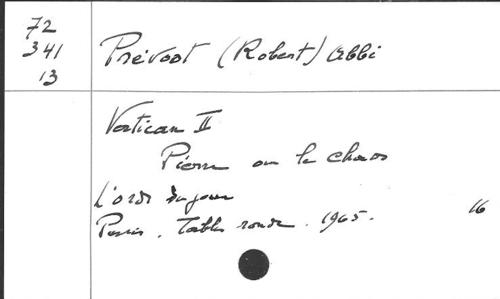 72
341
13
Prévost (Robert) abbé
Vatican II
Pierre ou le chaos
L'ordre du jour
Paris. Table ronde. 1965.
16